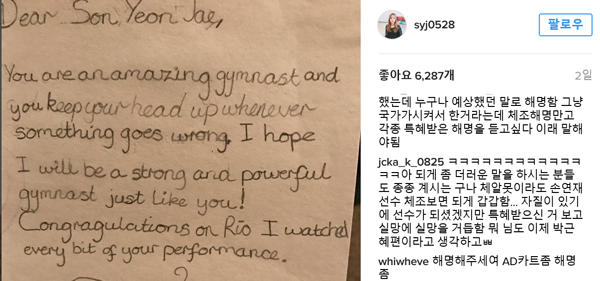 Dear Son Yeon Jae,
You are an amazing gymnast and
you keep your head up whenever
something goes wrong. I hope
I will be a strong and powerful
gymnast just like you!
Congragulations on Rio I watched
every bit of your performance.
syj0528
팔로우
좋아요 6,287개
2일
했는데 누구나 예상했던 말로 해명함 그냥
국가가시켜서 한거라는데 체조해명만고
각종 특혜받은 해명을 듣고싶다 이래 말해
야됨
jcka_k_0825 ㅋㅋㅋㅋㅋㅋㅋㅋㅋㅋㅋㅋ
ㅋㅋ아 되게 좀 더러운 말을 하시는 분들
도 종종 계시는 구나 체알못이라도 손연재
선수 체조보면 되게 갑갑함... 자질이 있기
에 선수가 되셨겠지만 특혜받으신 거 보고
실망에 실망을 거듭함 뭐 님도 이제 박근
혜편이라고 생각하고ㅃ
whiwheve 해명해주세여 AD카트좀 해명
좀